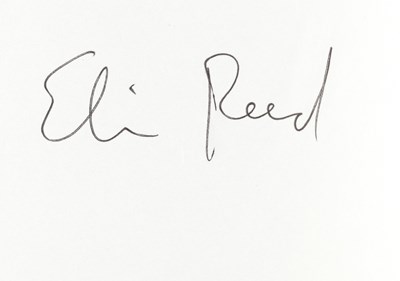 Eli Reed